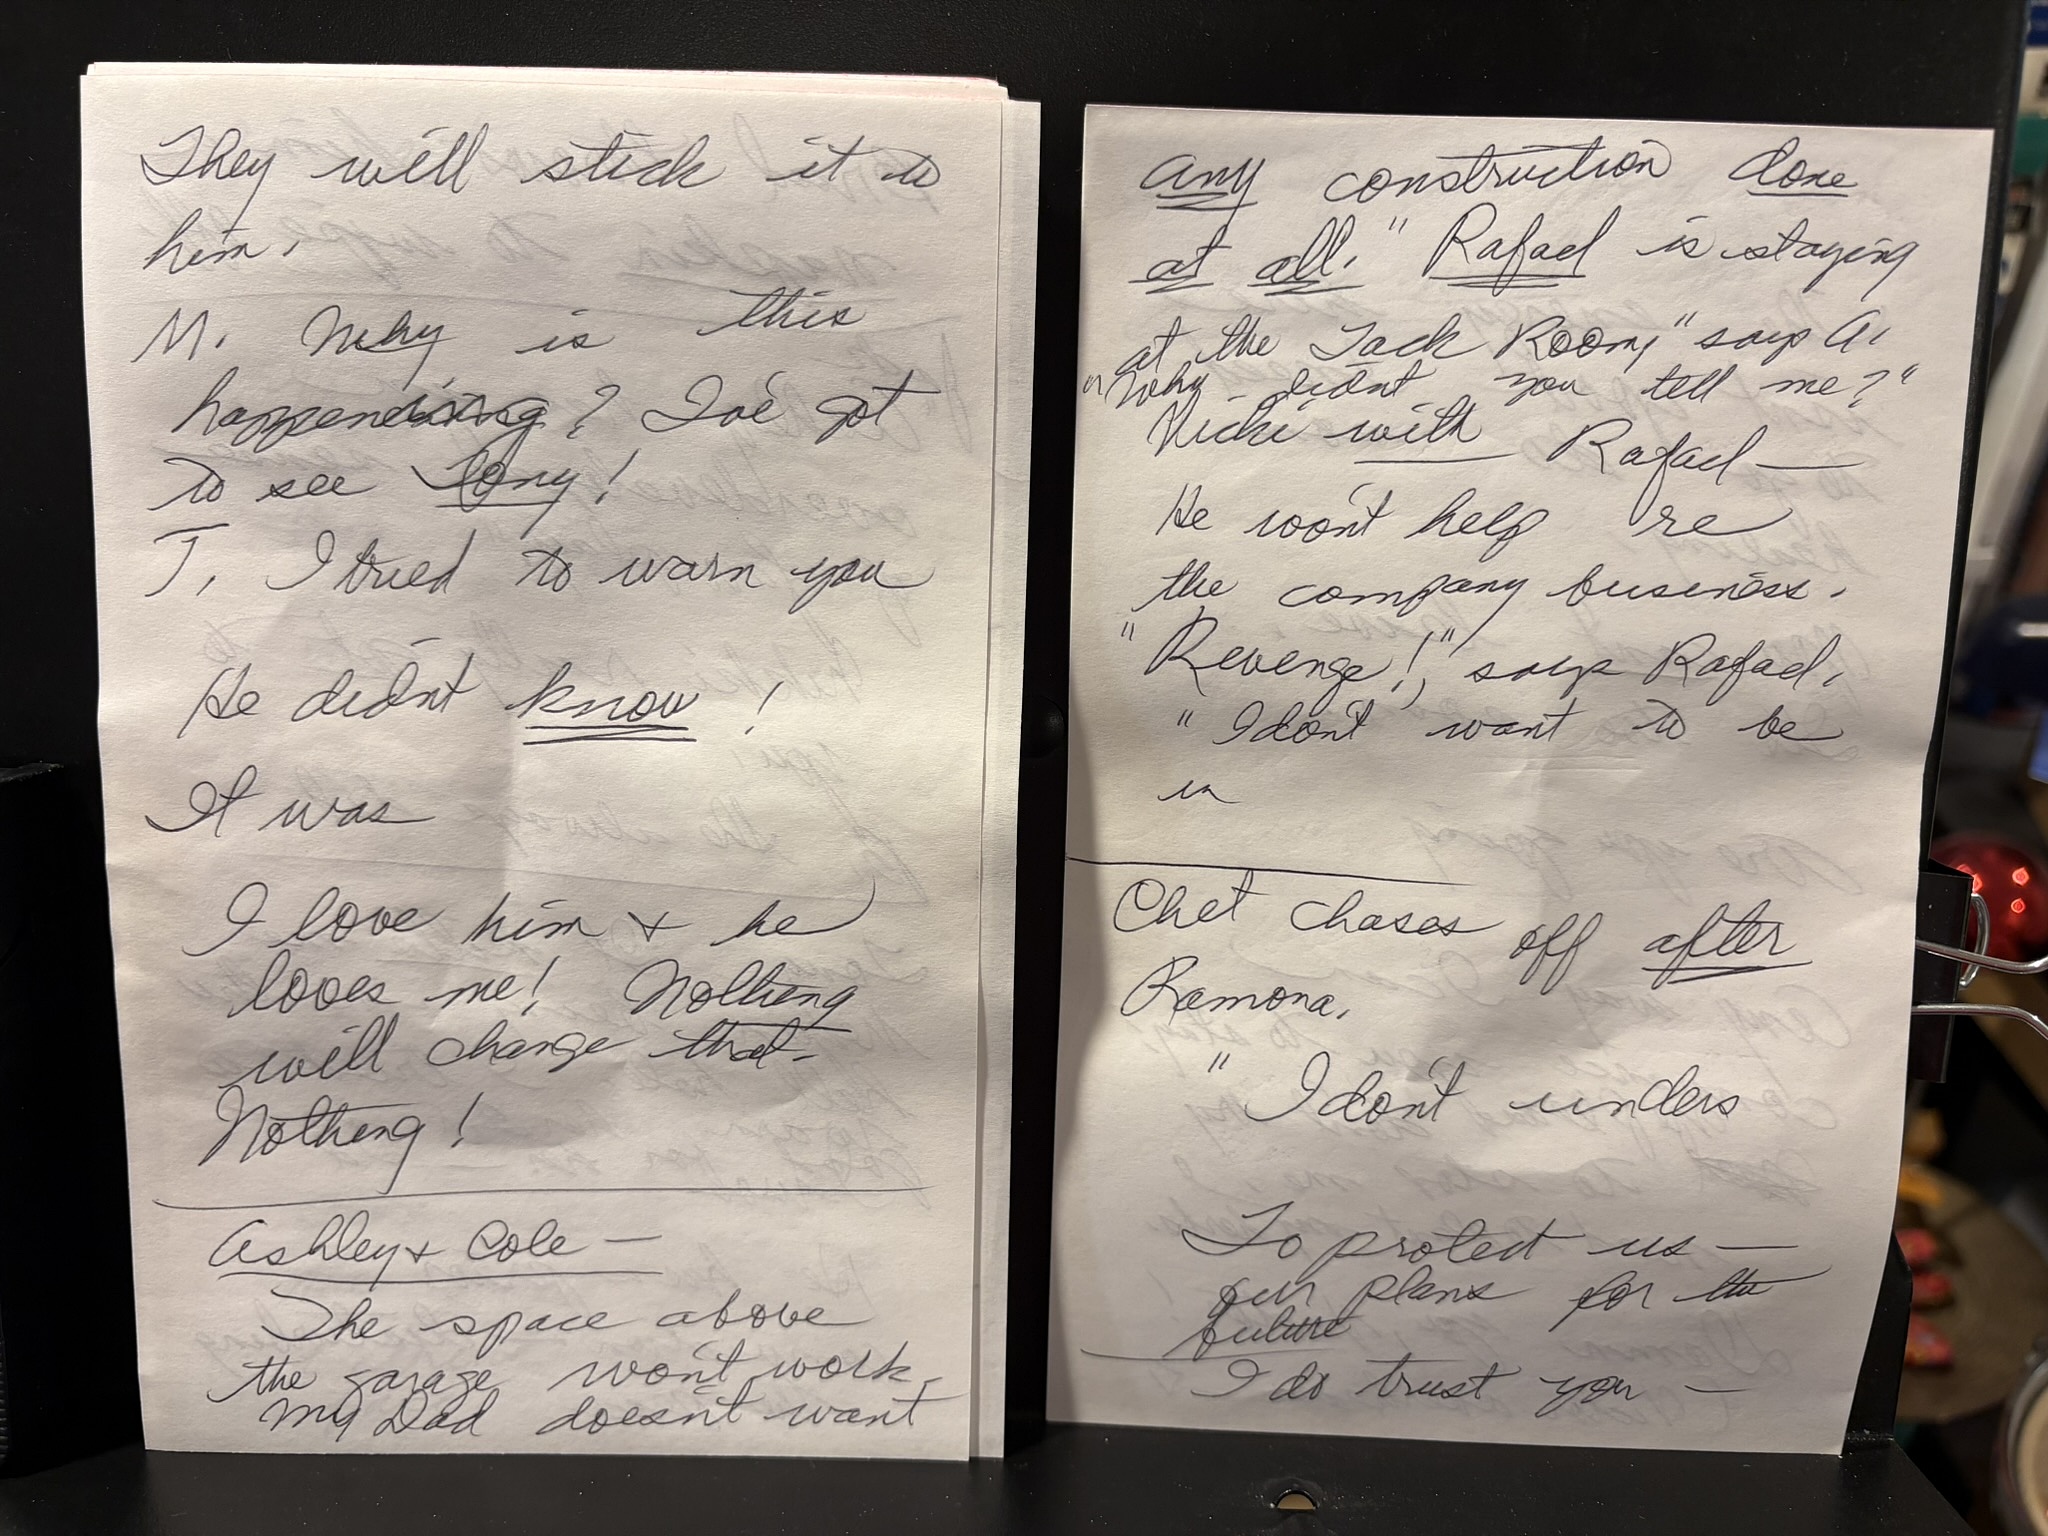 They will stick it to
him.
M. Why is this
happening? I've got
to see Tony!
T, I tried to warn you
He didn't know!
It was
I love him + he
loves me! Nothing
will change that-
Nothing!
Ashley + Cole —
The space above
the garage won't work.
My Dad doesn't want
any construction done
at all." Rafael is staying
at the Tack Room," says A.
"Why didn't you tell me?"
Nicki with Rafael —
He won't help re
the company business.
"Revenge!", says Rafael,
"I don't want to be
in
Chet chases off after
Ramona.
"I don't unders
To protect us —
our plans for the
future
I do trust you —